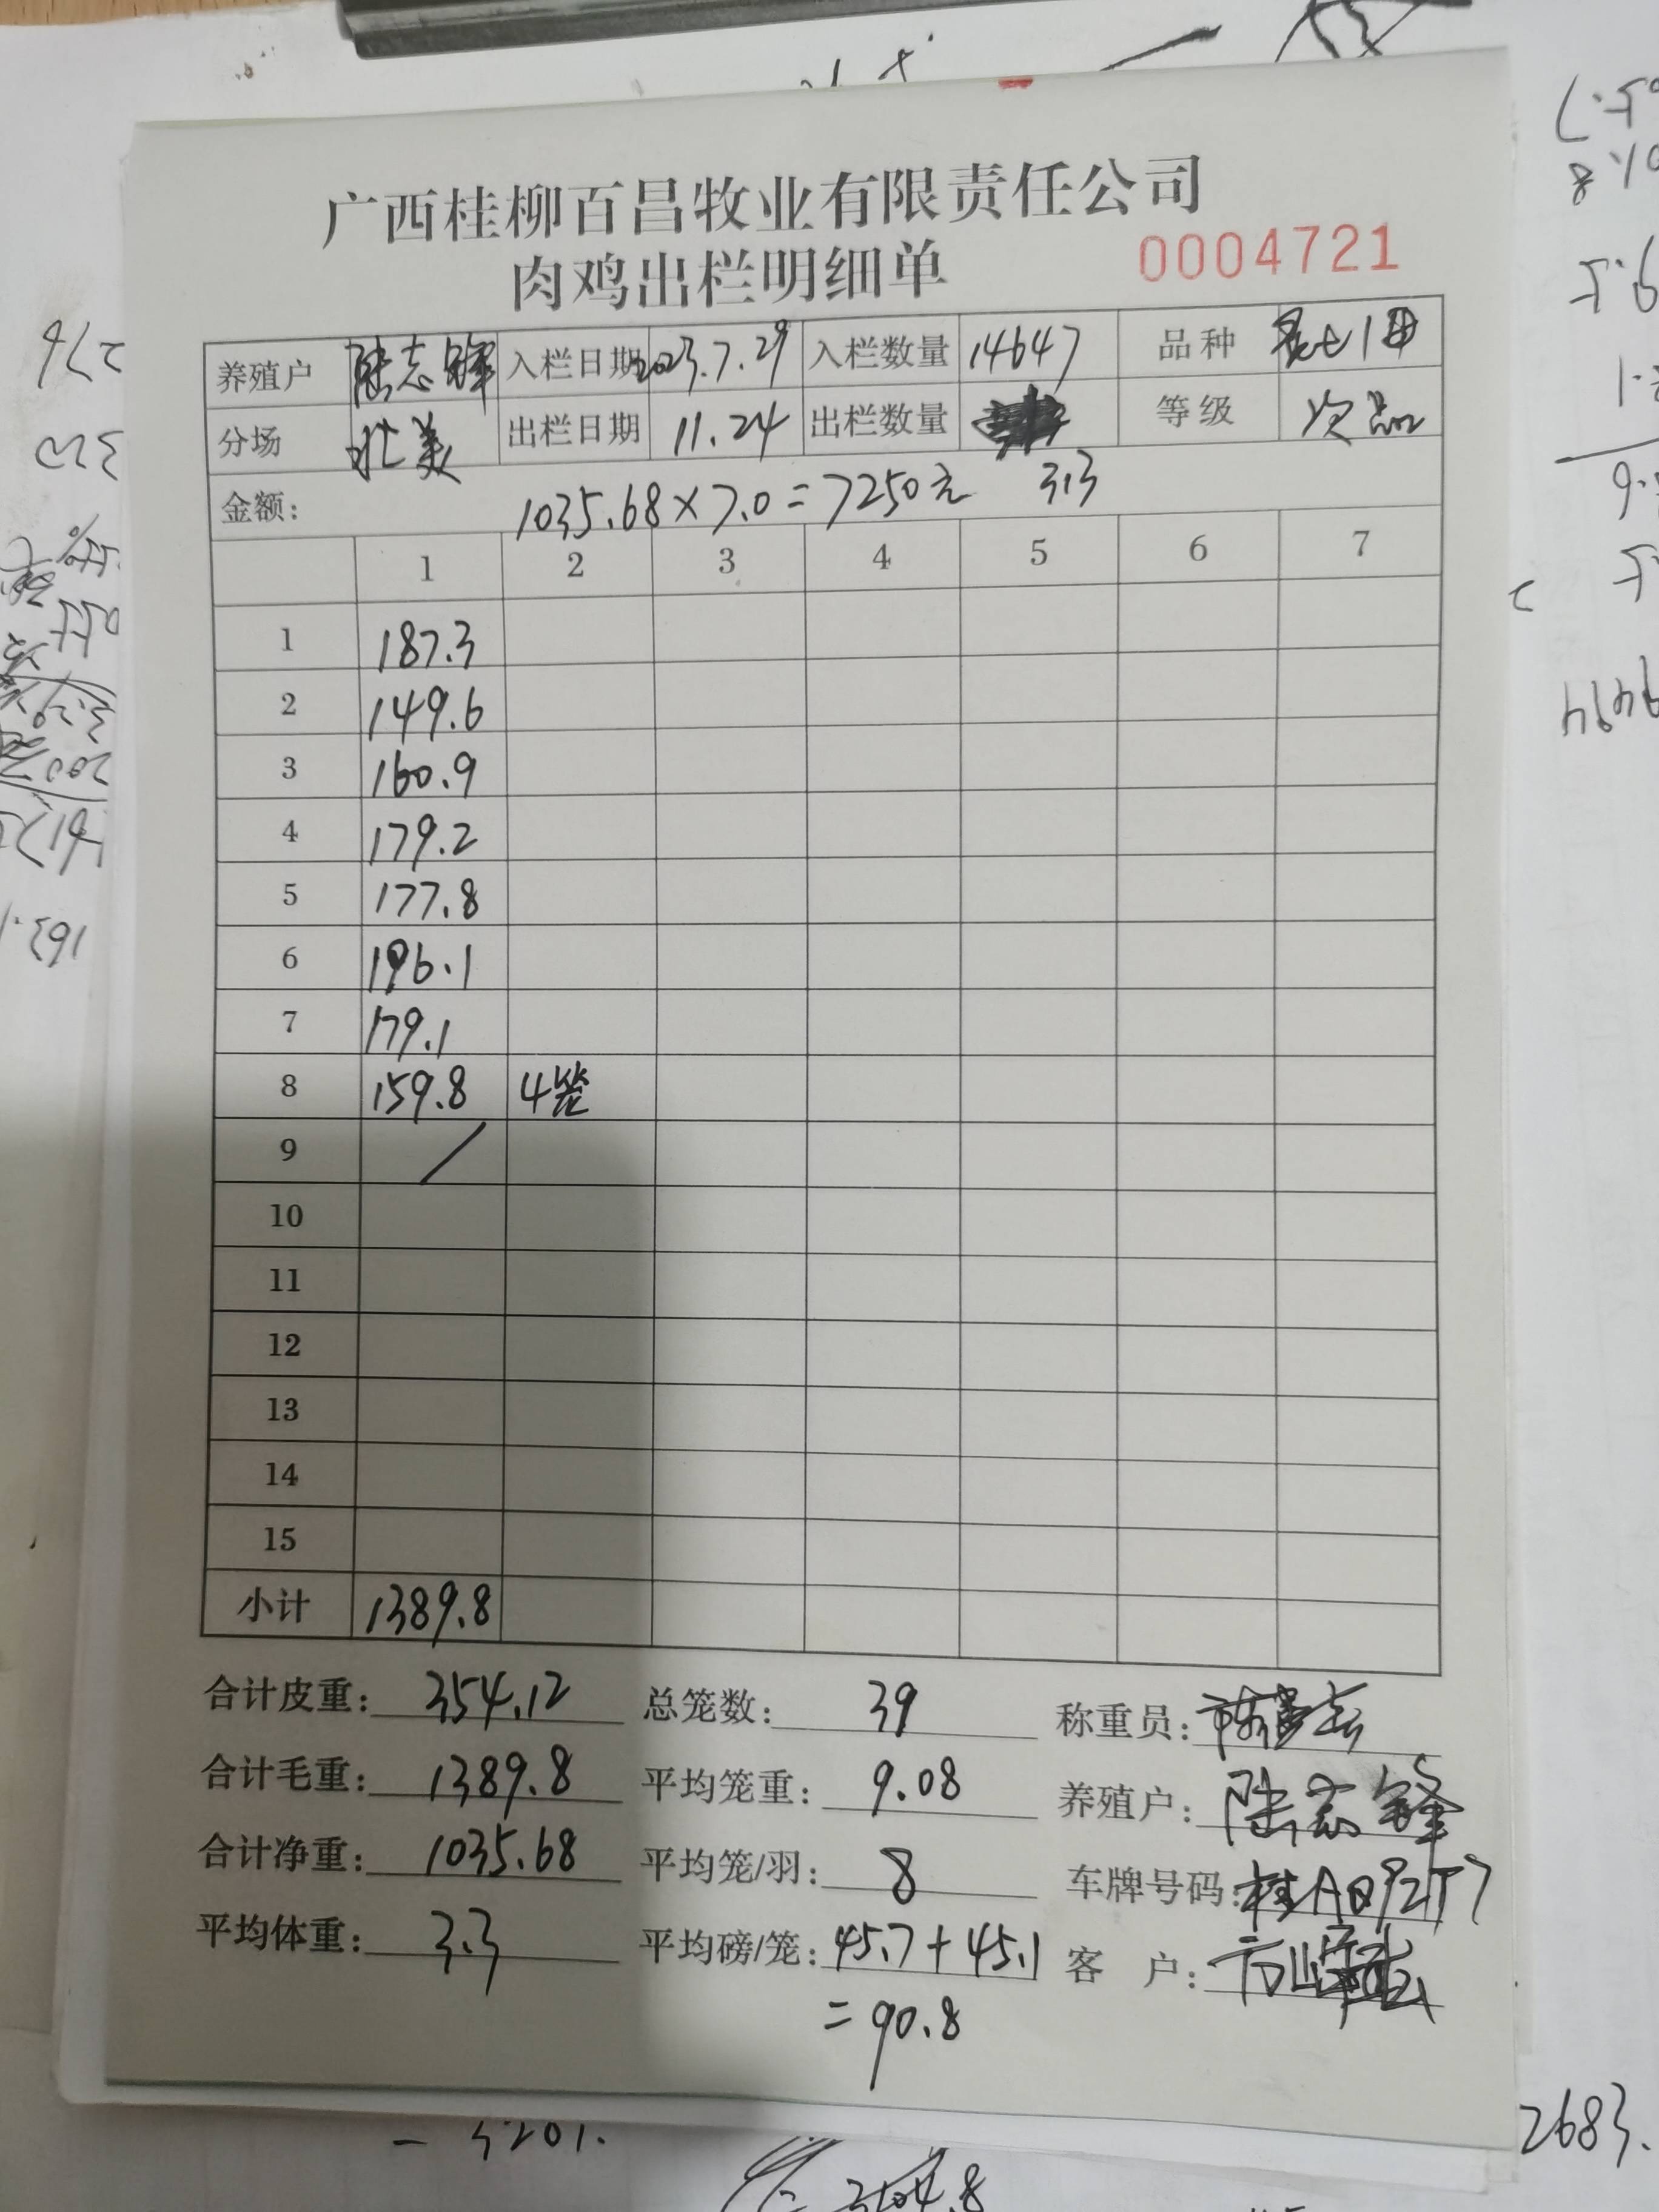 广西桂柳百昌牧业有限责任公司
肉鸡出栏明细单 0004721
养殖户 陆志锋 入栏日期 2023.7.29 入栏数量 14647 品种
分场 北美 出栏日期 11.24 出栏数量 等级 次品
金额: 1035.68×7.0=7250元 313
1 2 3 4 5 6 7
1 187.3
2 149.6
3 160.9
4 179.2
5 177.8
6 196.1
7 179.1
8 159.8 4笼
9 /
10
11
12
13
14
15
小计 1389.8
合计皮重: 354.12 总笼数: 39 称重员:
合计毛重: 1389.8 平均笼重: 9.08 养殖户: 陆志锋
合计净重: 1035.68 平均笼/羽: 8 车牌号码:
平均体重: 3.3 平均磅/笼: 45.7+45.1 客 户:
=90.8
276
322
163.
2683.
5201.
304.8